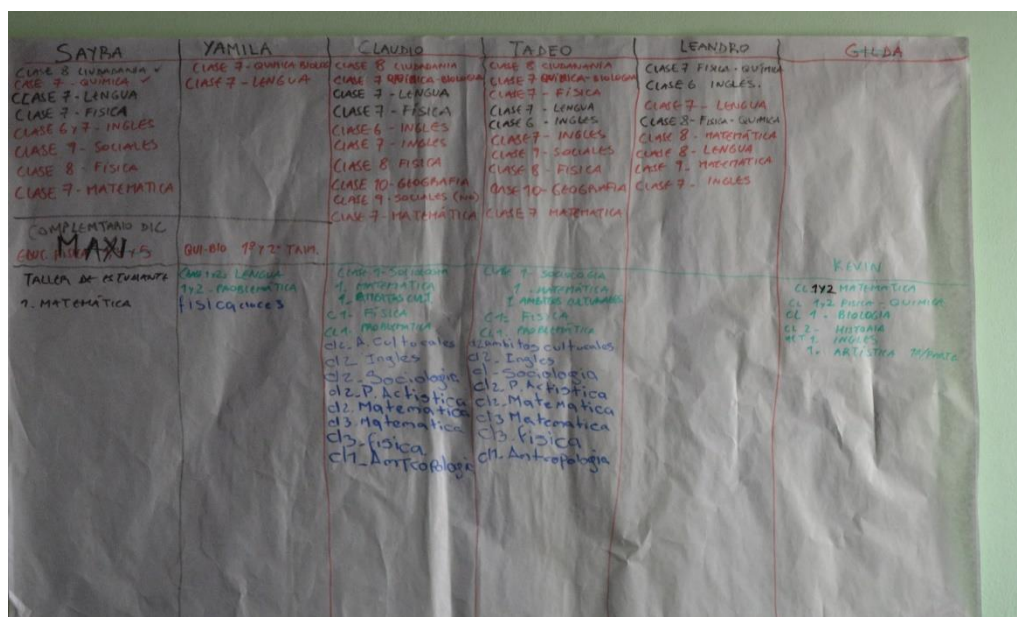 SAYRA
CLASE 8 CIUDADANIA
CLASE 7 - QUIMICA
CLASE 7 - LENGUA
CLASE 7 - FISICA
CLASE 6 Y 7 - INGLES
CLASE 9 - SOCIALES
CLASE 8 - FISICA
CLASE 7 - MATEMATICA
COMPLEMTARIO DIC
MAXI
TALLER DE ESTUDIANTE
1. MATEMÁTICA
YAMILA
CLASE 7 - QUIMICA BIOLOG
CLASE 7 - LENGUA
QUI-BIO 1º Y 2º TRIM.
LENGUA
1Y2 - PROBLEMÁTICA
fisica
CLAUDIO
CLASE 8 CIUDADANIA
CLASE 7 QUIMICA-BIOLOGIA
CLASE 7 - LENGUA
CLASE 7 - FÍSICA
CLASE 6 - INGLES
CLASE 7 - INGLES
CLASE 8 FISICA
CLASE 10 - GEOGRAFIA
CLASE 9 - SOCIALES (NO)
CLASE 7 - MATEMÁTICA
CLASE 1 - SOCIOLOGIA
1. MATEMÁTICA
CL 1. FÍSICA
CL 1. PROBLEMÁTICA
cl2. A. Culturales
cl2 Ingles
cl2. Sociologia
cl2. P. Actistica
cl2. Matematica
cl3. Matematica
cl3. fisica
cl1. Antropologi
TADEO
CLASE 8 CIUDADANIA
CLASE 7 QUIMICA-BIOLOGIA
CLASE 7 - FÍSICA
CLASE 7 - LENGUA
CLASE 6 - INGLES
CLASE 7 - INGLES
CLASE 9 - SOCIALES
CLASE 8 - FISICA
CLASE 10 - GEOGRAFIA
CLASE 7 MATEMATICA
CLASE 1 - SOCIOLOGIA
1. MATEMÁTICA
1 AMBITOS CULTURALES
CL 1. FISICA
CL 1. PROBLEMÁTICA
ambitos culturales
cl2. Ingles
cl - Sociologia
cl2. P. Actistica
cl2. Matematica
cl3 Matematica
cl3. fisica
cl1. Antropologia
LEANDRO
CLASE 7 FISICA - QUÍMICA
CLASE 6 INGLES.
CLASE 7 - LENGUA
CLASE 8 - FISICA - QUIMICA
CLASE 8 - MATEMÁTICA
CLASE 8 - LENGUA
CLASE 9 - MATEMÁTICA
CLASE 7 - INGLES
GILDA
KEVIN
CL 1Y2 MATEMÁTICA
CL 1Y2 FISICA - QUIMICA
CL 1 - BIOLOGIA
CL 2 - HISTORIA
INGLES
1. ARTÍSTICA